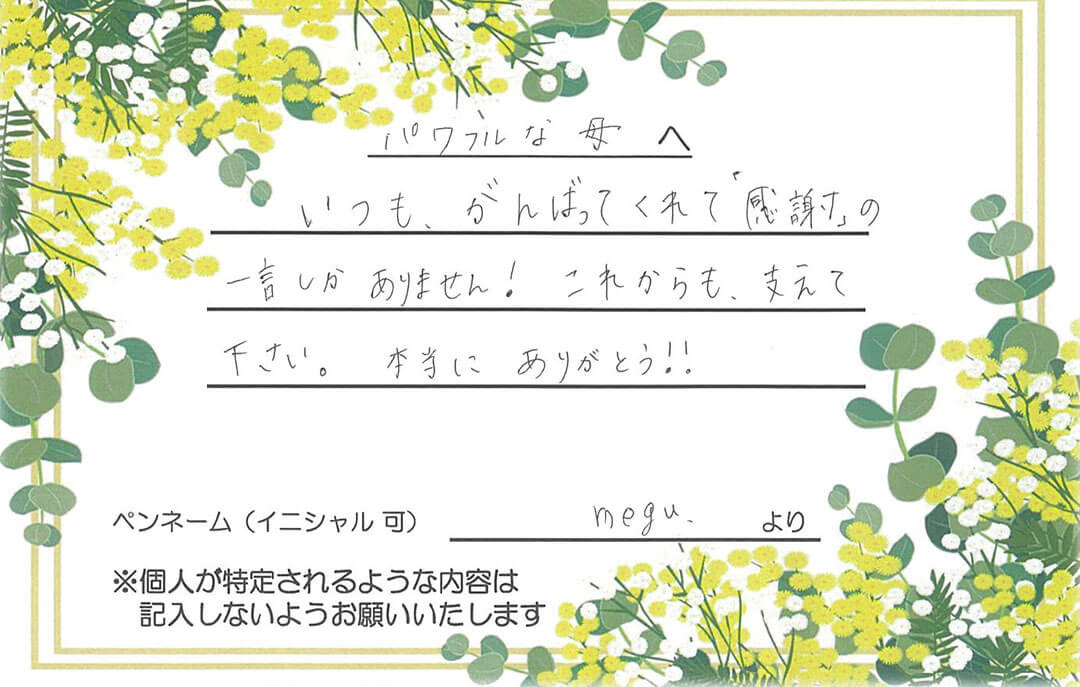 パワフルな母へ
いつも、がんばってくれて「感謝」の
一言しかありません！これからも、支えて
下さい。本当にありがとう!!
ペンネーム（イニシャル可） megu. より
※個人が特定されるような内容は
記入しないようお願いいたします